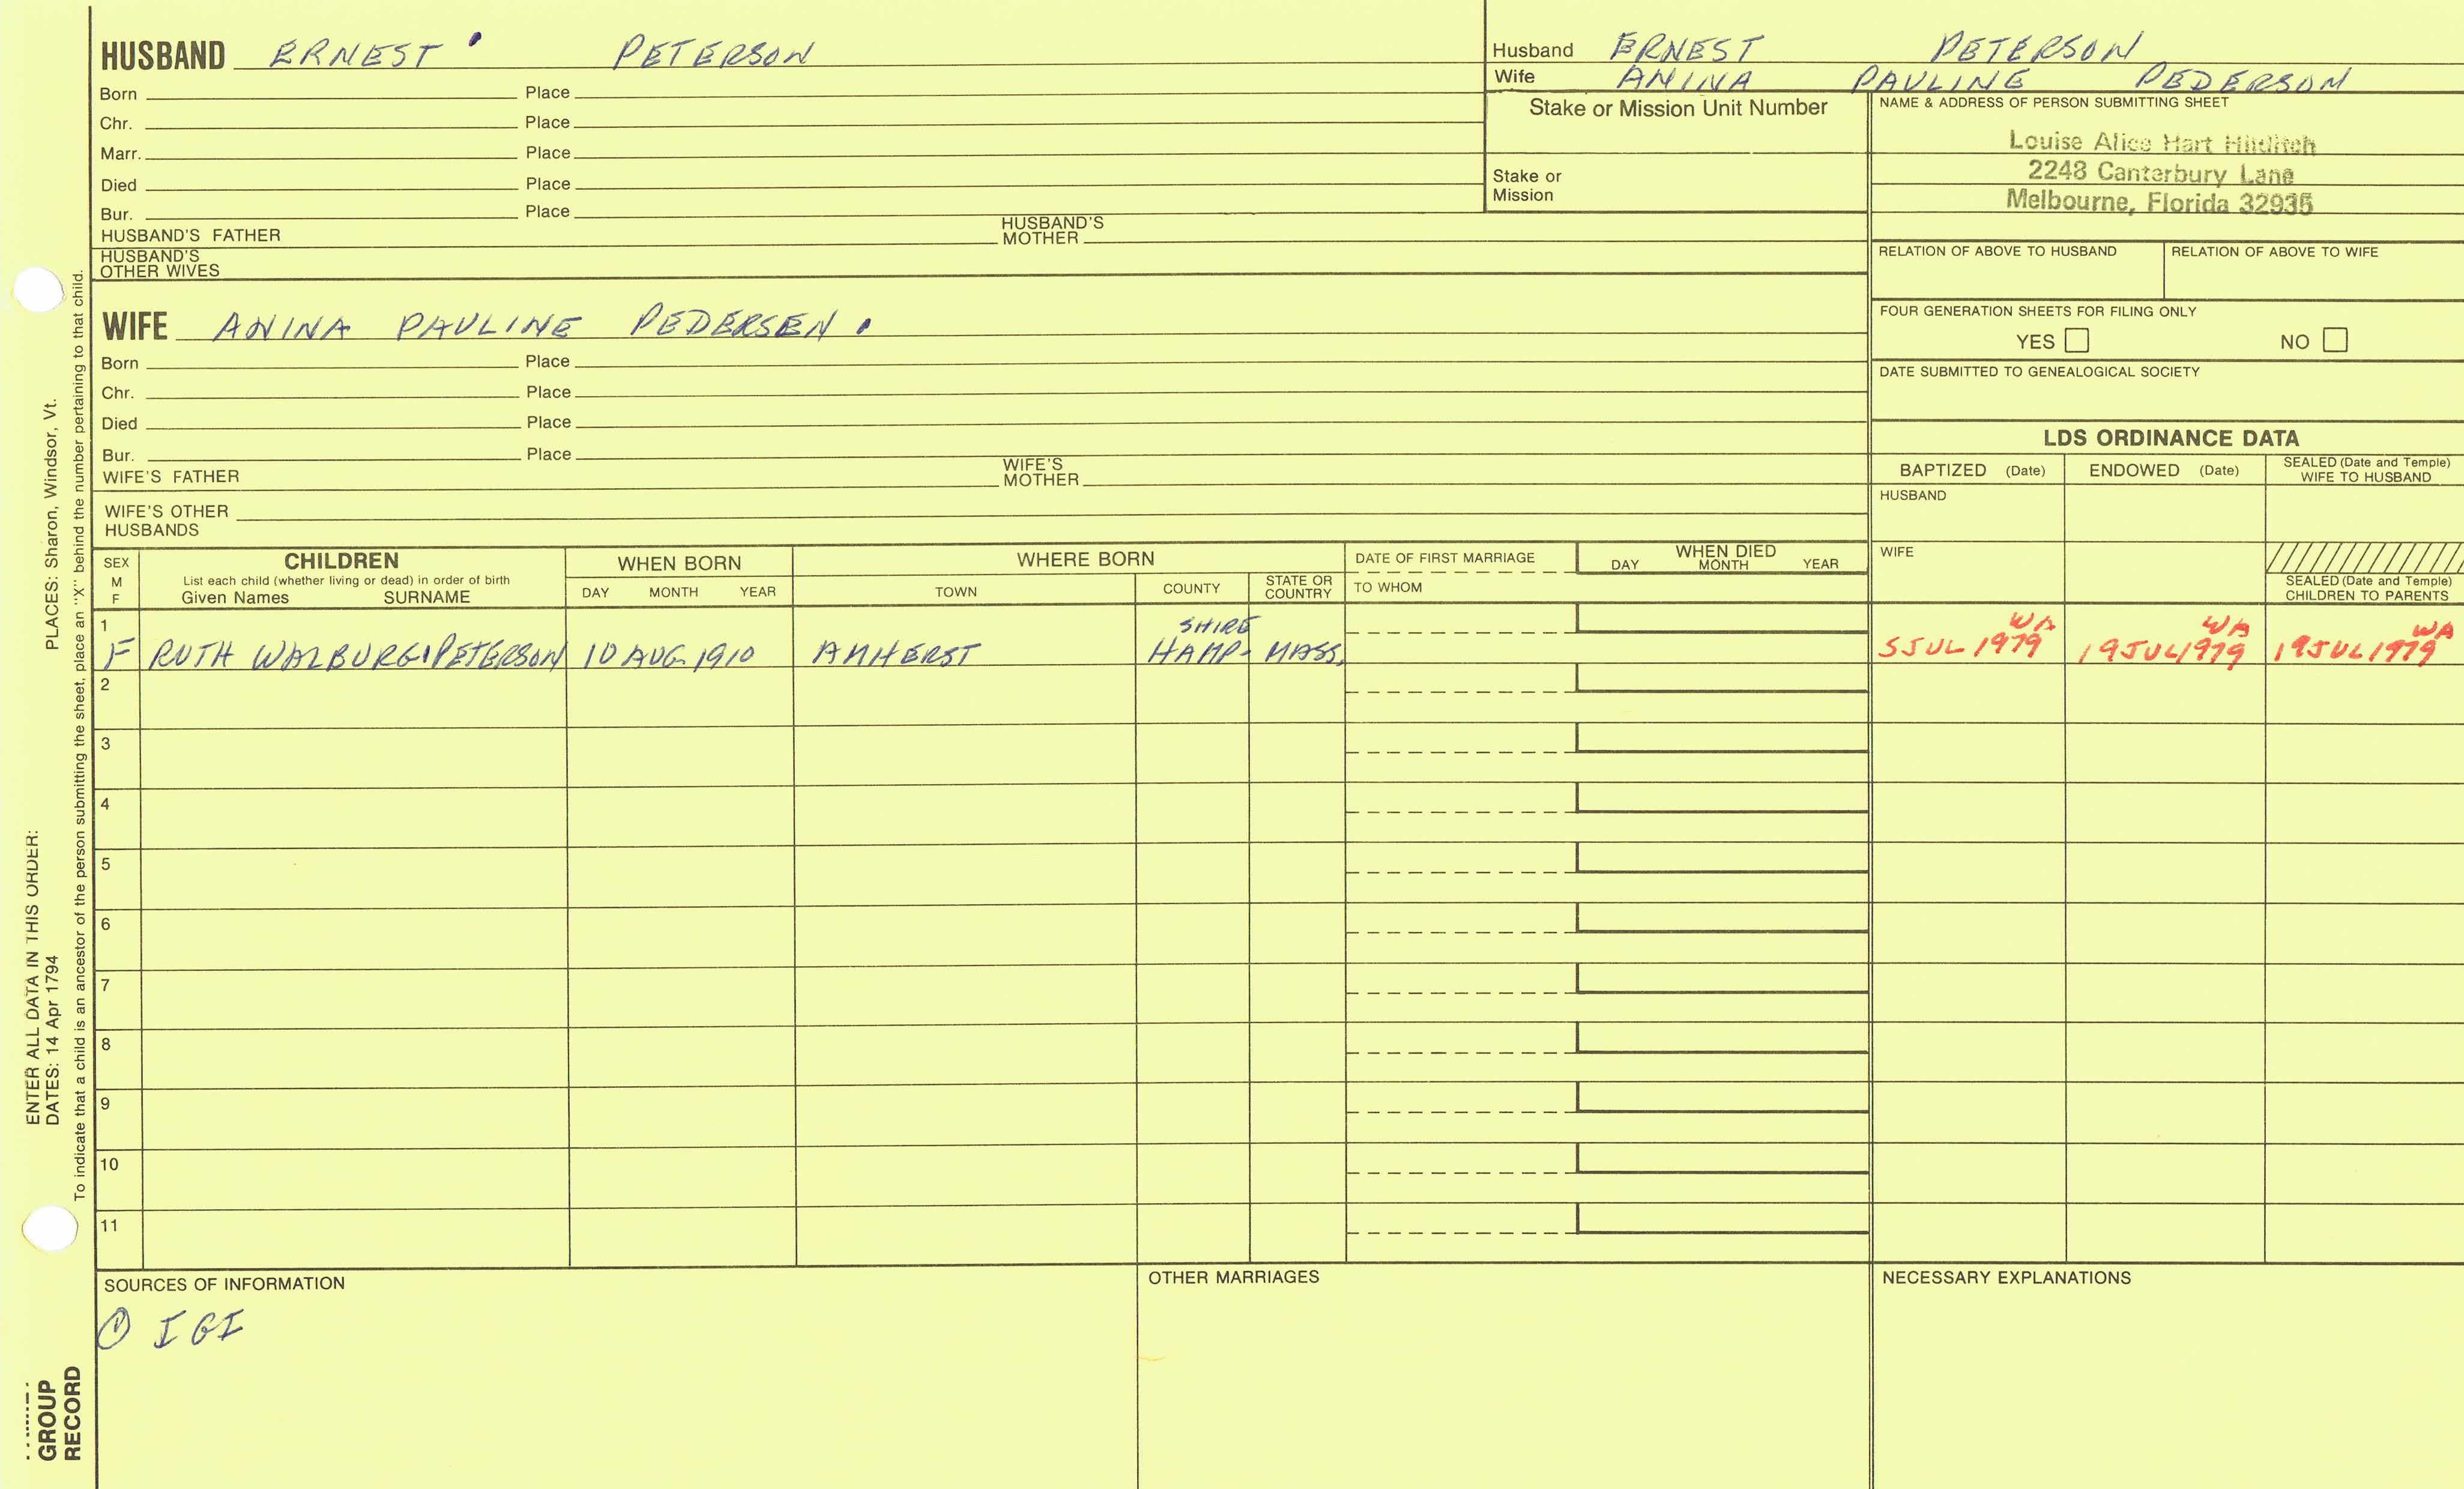 HUSBAND ERNEST PETERSON
Born Place
Chr. Place
Marr. Place
Died Place
Bur. Place
HUSBAND'S FATHER HUSBAND'S MOTHER
HUSBAND'S OTHER WIVES
Husband ERNEST PETERSON
Wife ANINA PAULINE PEDERSON
Stake or Mission Unit Number
Stake or Mission
NAME & ADDRESS OF PERSON SUBMITTING SHEET
Louise Alice Hart
2248 Canterbury Lane
Melbourne, Florida 32935
RELATION OF ABOVE TO HUSBAND RELATION OF ABOVE TO WIFE
FOUR GENERATION SHEETS FOR FILING ONLY
YES NO
DATE SUBMITTED TO GENEALOGICAL SOCIETY
WIFE ANINA PAULINE PEDERSEN.
Born Place
Chr. Place
Died Place
Bur. Place
WIFE'S FATHER WIFE'S MOTHER
WIFE'S OTHER HUSBANDS
LDS ORDINANCE DATA
BAPTIZED (Date) ENDOWED (Date) SEALED (Date and Temple) WIFE TO HUSBAND
HUSBAND
WIFE
SEALED (Date and Temple) CHILDREN TO PARENTS
SEX M F
CHILDREN
List each child (whether living or dead) in order of birth
Given Names SURNAME
WHEN BORN
DAY MONTH YEAR
WHERE BORN
TOWN COUNTY STATE OR COUNTRY
DATE OF FIRST MARRIAGE
TO WHOM
WHEN DIED
DAY MONTH YEAR
1
SHIRE WA WA WA
F RUTH WALBURGI PETERSON 10 AUG. 1910 AMHERST HAMP- MASS. 5 JUL 1979 19 JUL 1979 19 JUL 1979
2
3
4
5
6
7
8
9
10
11
SOURCES OF INFORMATION
① IGI
OTHER MARRIAGES
NECESSARY EXPLANATIONS
ENTER ALL DATA IN THIS ORDER:
DATES: 14 Apr 1794 PLACES: Sharon, Windsor, Vt.
To indicate that a child is an ancestor of the person submitting the sheet, place an "X" behind the number pertaining to that child.
GROUP
RECORD